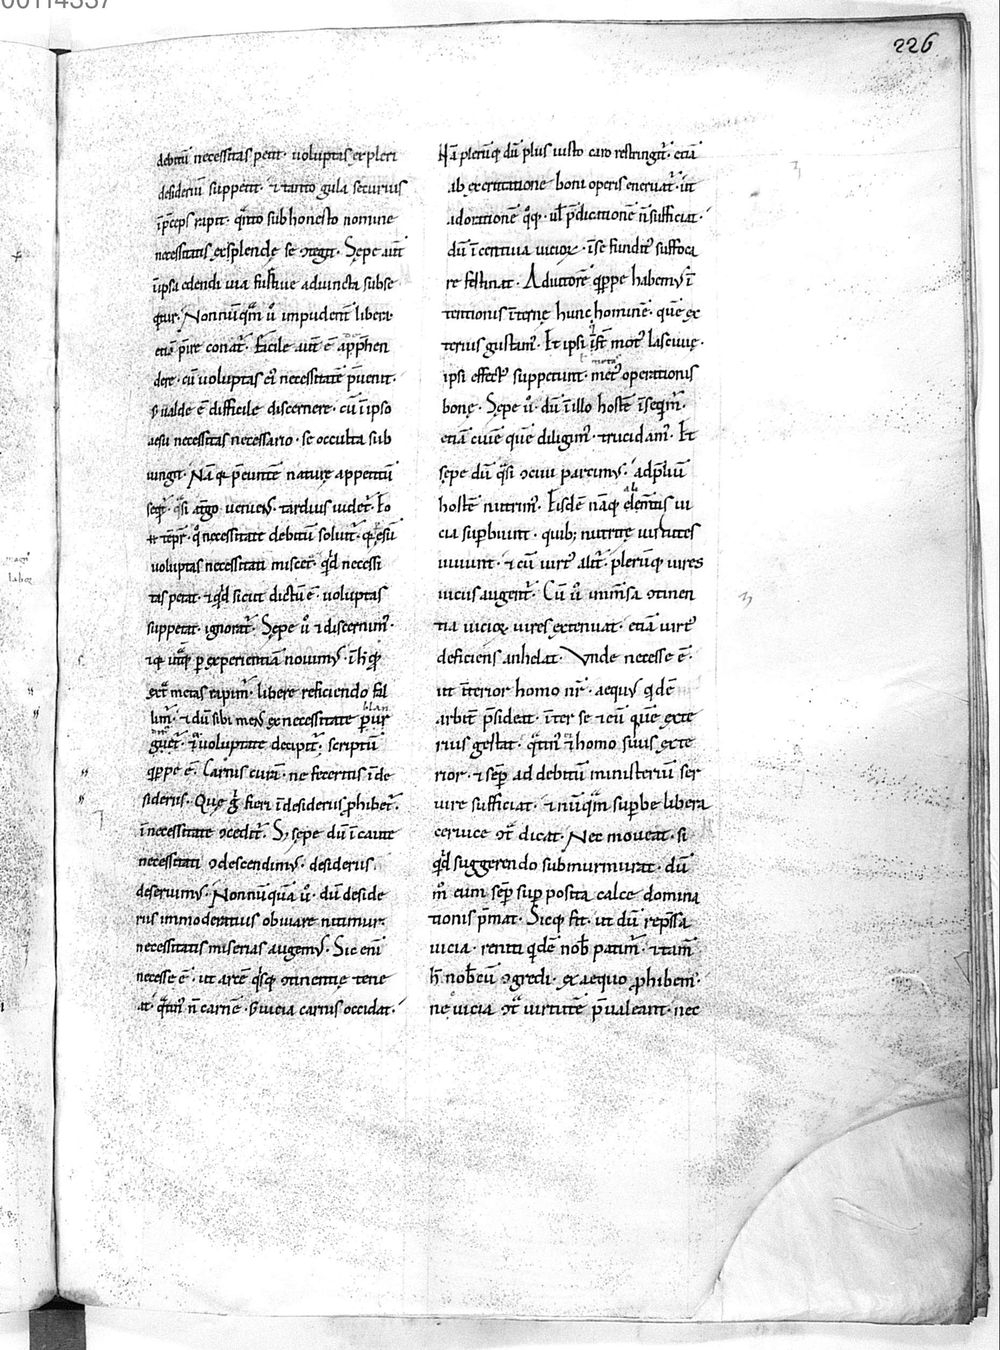 226
debitū necessitas petit· uoluptas expleri
desideriū suppetit· & tanto gula securius
ī p̄ceps rapit· q̃nto sub honesto nomine
necessitatis explendę se ɔtegit· Sępe aut̄
ī ipsa edendi uia furtiue adiuncta subse
q̄tur· Nonnūq̃m ů impudent̄ libera
etiā p̄ire conat᷑· Facile aut̄ ē app̄hen
dere· cū uoluptas eī necessitatē p̄uenit·
s; ualde ē difficile discernere· cū ī ipso
aesu necessitas necessario· se occulta sub
iungit· Nā q̊ p̄euntē naturę appetitū
seq̄t᷑· q̃si a t̄go ueniens· tardius uidet᷑· Eo
tēpr̄· q̊ necessitate debitū soluit᷑· q̄ p esū
uoluptas necessitati miscet᷑· q̊d necessi
tas petat· & q̊d sicut dictū ē· uoluptas
suppetat· ignorat᷑· Sępe ů & discernim᷑·
& q̄ utq̃q̄ p experientiā nouimꝰ· ī h̊ q̊
ext̃ metas rapim᷑· libere reficiendo fal
lim᷑· & dū sibi mens ex necessitate p̄ur
blan
guet᷑· & uoluptate decipit᷑· scriptū
q̄ppe ē· Carnis curā· ne feceritis ī de
sideriis· Quę g̊ fieri ī desideriis p̄hibet᷑·
ī necessitate ɔcedit᷑· S; sępe dū ī caute
necessitati ɔdescendimꝰ· desideriis
deseruimꝰ· Nonnūquā ů· dū deside
riis immoderatius obuiare nitimur·
necessitatis miserias augemꝰ· Sic enī
necesse ē· ut arcē q̊sq; ɔtinentię tene
at· q̃tin᷑ n̄ carnē· s; uicia carnis occidat·
Nā plerūq; dū plus iusto caro restringit᷑· etiā
ab exercitatione boni operis eneruat᷑· ut
ad orationē q̊q;· ul̄ p̄dicationē n̄ sufficiat·
dū īcentiua uicioꝝ· ī se fundit᷑ suffoca
re festinat· Adiutorē q̄ppe habemꝰ ī
tentionis īternę hunc hominē· quē ex
terius gustam᷑· Et ipsi īst̄ mot᷑ lasciuię·
ipsi effect᷑ suppetunt· met᷑ operationis
bonę· Sępe ů· dū ī illo hostē īseq̄m᷑·
etiā ciuē quē diligim᷑· trucidam᷑· Et
sępe dū q̃si ɔciui parcimꝰ· ad p̄liū
hostē nutrim᷑· Eisdē nāq; elem̄tis ui
ali
cia sup̄biunt· quib; nutritę uirtutes
uiuunt· & cū uirt᷑ alit᷑· plerūq; uires
uiciis augent᷑· Cū ů īmm̄sa ɔtinen
tia uicioꝝ uires extenuat· etiā uirt᷑
deficiens anhelat· Vnde necesse ē·
ut īterior homo nr̄· aequꝰ q̊dē
arbit᷑ p̄sideat· īter se & eū quē exte
rius gestat· q̃tin᷑ & homo suus exte
rior· & sēp ad debitū ministeriū ser
uire sufficiat· & nūq̃m sup̄be libera
ceruice ɔt̃ dicat· Nec moueat· si
q̊d suggerendo submurmurat· dū
m̄ eum sēp sup posita calce domina
tionis p̄mat· Sicq; fit· ut dū rep̄ssa
uicia· reniti q̊dē nob̄ patim᷑· & tam̄
h̄ nob̄cū ɔgredi· ex aequo p̄hibem᷑·
nec uicia ɔt̃ uirtutē p̄ualeant· nec